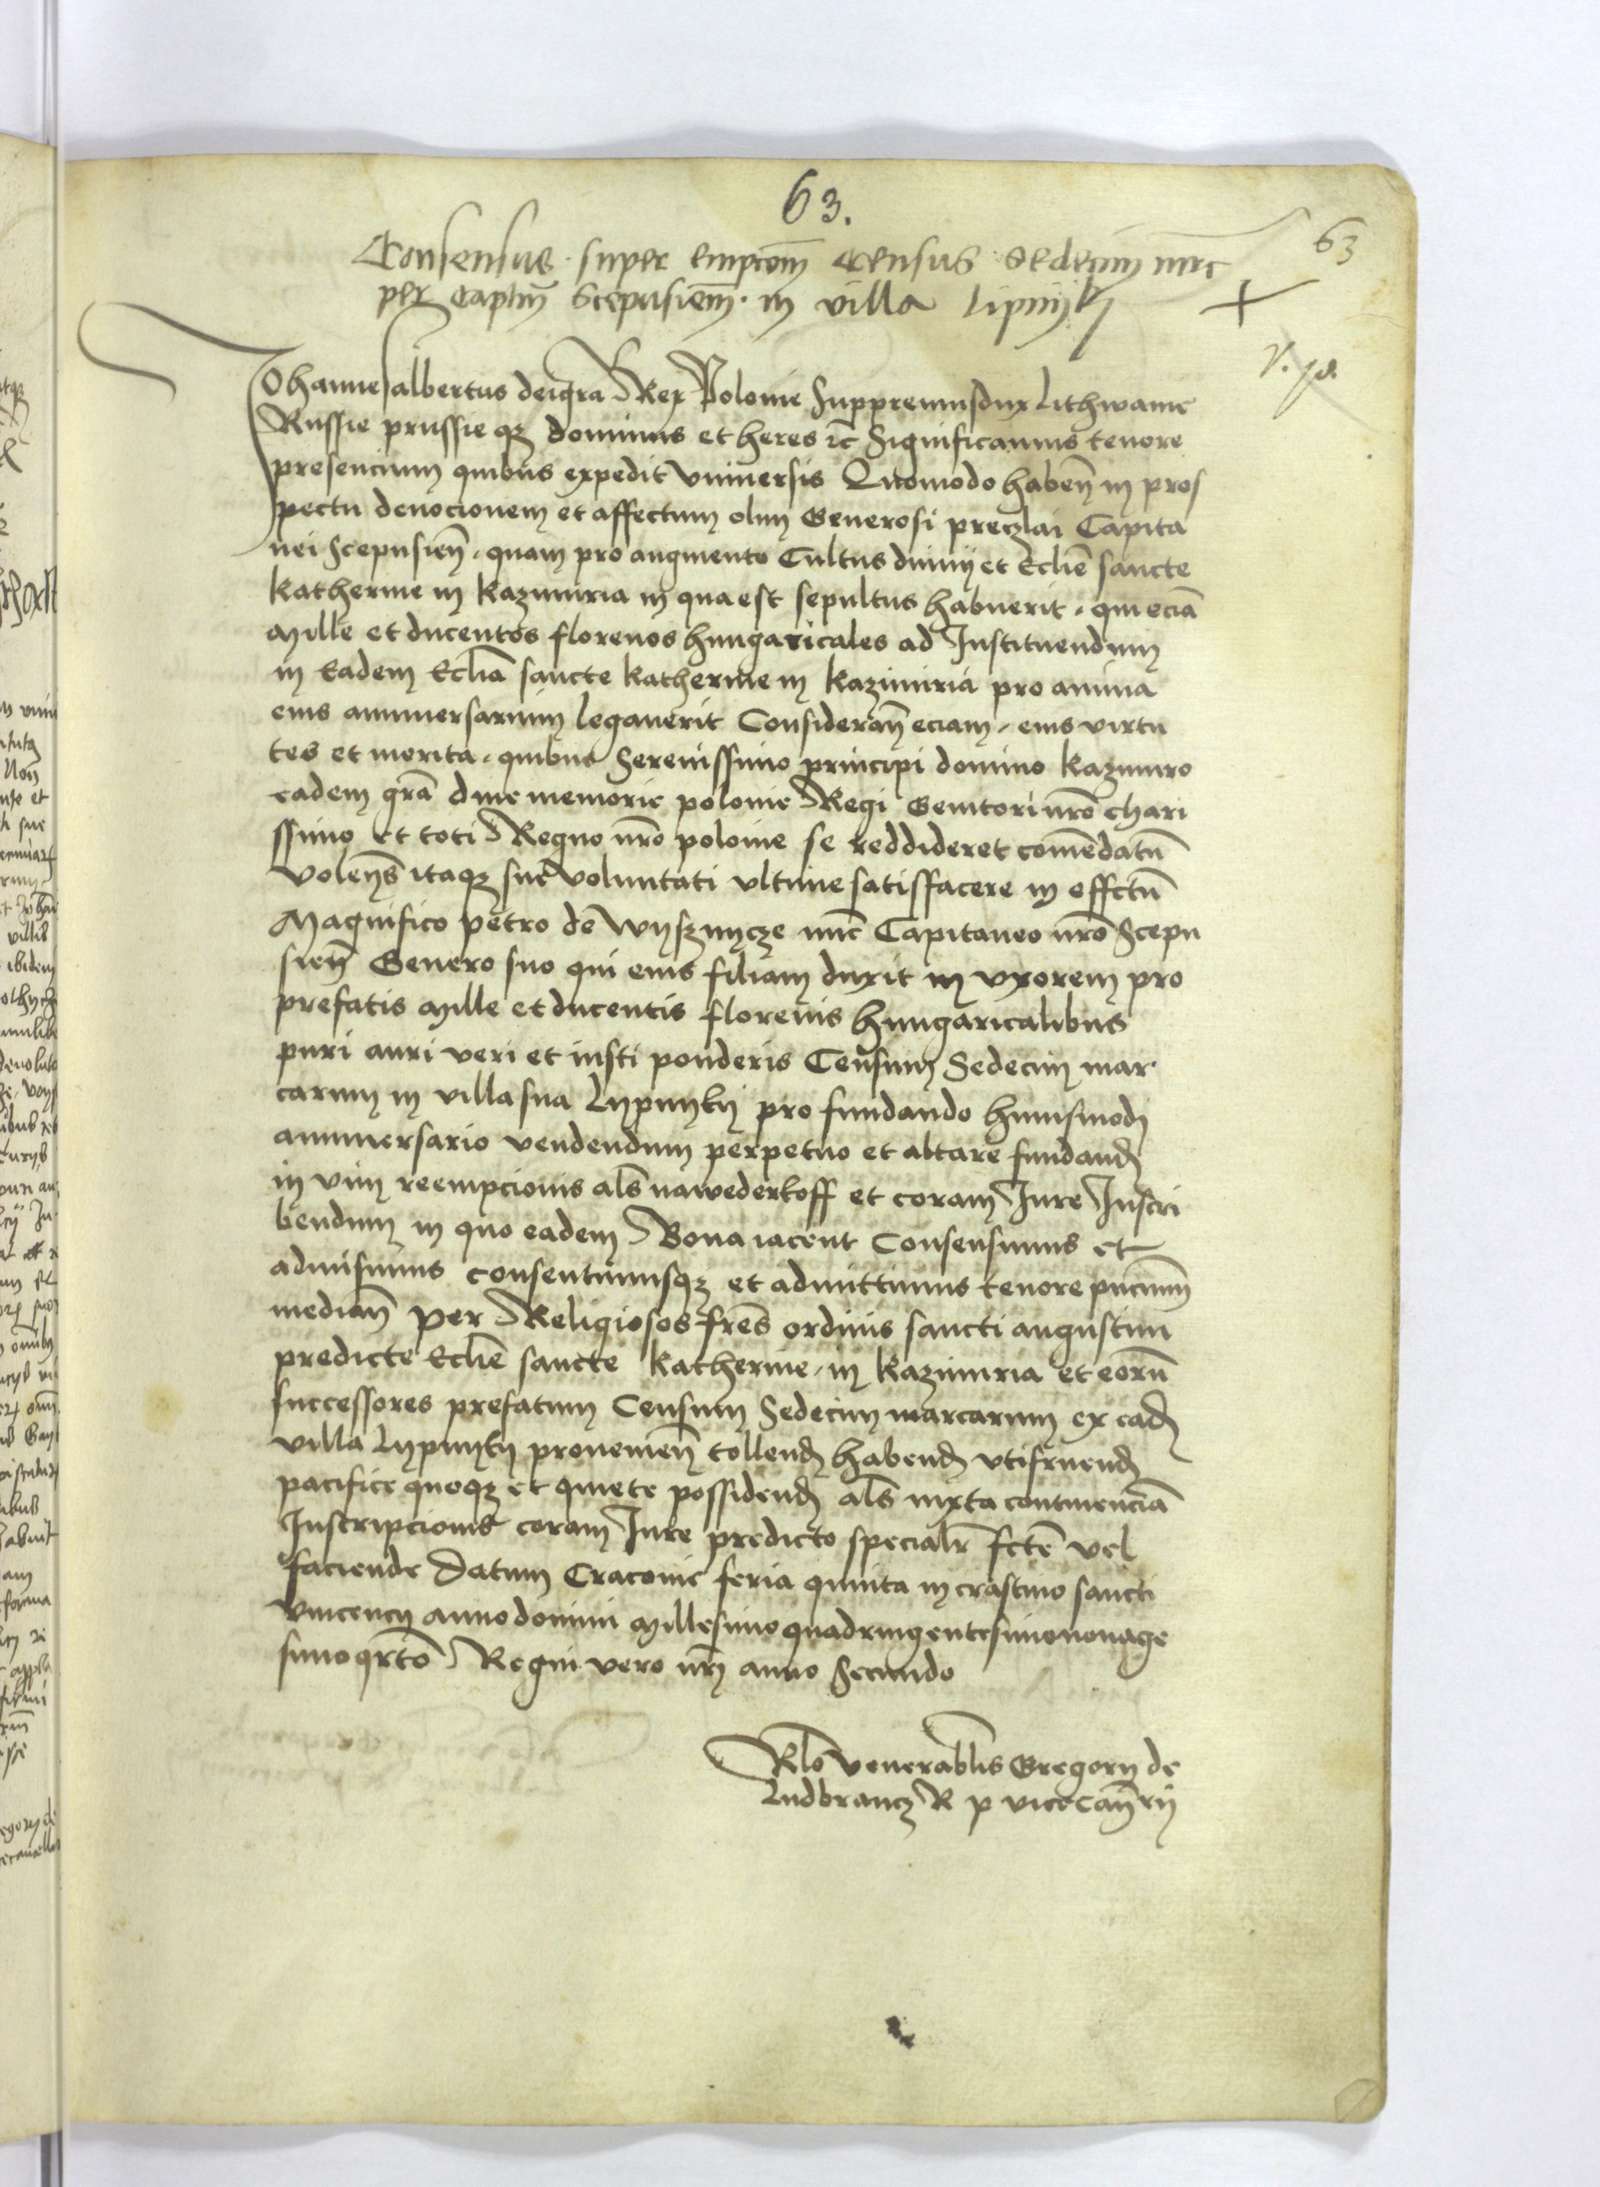 63.
63
Consensus super empcōem census sedecim mrc
per Capitm̄ Scepusieñ. in villa Lipniki
Johannes albertus dei gra Rex Polonie Suppremusdux Lithwanie
Russie prussieqȝ dominus et heres ꝛc Significamus tenore
presencium quibus expedit vniuersis Quomodo habeñ in pros
pectu deuocionem et affectum olim Generosi preczlai Capita
nei Scepusieñ. quam pro augmento Cultus diuinj et Eclie sancte
Katherine in Kazimiria in qua est sepultus habuerit. qui eciā
Mille et ducentos florenos hungaricales ad Instituendum
in Eadem Eclia sancte Katherine in Kazimiria pro anima
eius anniuersarium legauerit Considerañ eciam. eius virtu
tes et merita. quibus Serenissimo principi domino Kazimiro
eadem gra diue memorie polonie Regi Genitori nrō chari
ssimo et toti Regno nrō polonie se reddideret comendatū
Volens itaqȝ sue voluntati vltime satisfacere in effctū
Magnifico petro de Wysznycze nūc Capitaneo nrō Scepu
sieñ Genero suo qui eius filiam duxit in vxorem pro
prefatis Mille et ducentis florenis hungaricalibus
puri auri veri et iusti ponderis Censum Sedecim mar
carum in villa sua Lypnyky pro fundando huiusmodi
anniuersario vendendum perpetuo et altare fundand
in vim reempcionis als nawederkoff et coram Iure Inscri
bendum in quo eadem Bona iacent Consensimus et
admisimus consentimusqȝ et admittimus tenore pñcium
mediañ per Religiosos frēs ordinis sancti augustini
predicte Eclie sancte Katherine in Kazimiria et eorū
successores prefatum Censum Sedecim marcarum ex ead
villa Lypnyky prouenieñ tollend habend vtifruend
pacifice quoqȝ et quiete possidend als iuxta continenciā
Inscripcionis coram Iure predicto specialr fcte vel
faciende Datum Cracouie feria quinta in crastino sancti
Vincencij anno domini Millesimo quadringentesimo nonage
simo qrto Regni vero nrī anno Secundo
Rlo Venerablis Gregorij de
Ludbrancz R p vicecañrij